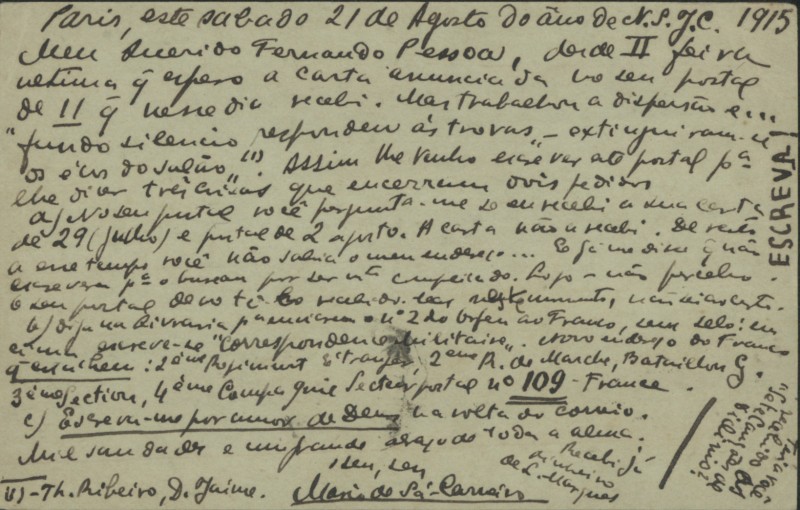 Paris, este sabado 21 de Agosto do âno de N.S.J.C. 1915
Meu Querido Fernando Pessoa, desde II feira
ultima q̃ espero a carta anunciada no seu postal
de 11 q̃ nesse dia recebi. Mas trabalhou a dispersão e...
"fundo silencio respondeu ás trovas – extinguiram-se
os écos do salão" (1). Assim lhe venho escrever este postal pª
lhe dizer três coisas que encerram dois pedidos
a) No seu postal você pergunta-me se eu recebi a sua carta
de 29 (Julho) e postal de 2 agosto. A carta não a recebi. De resto
a esse tempo você não sabia o meu endereço... E já me disse q̃ não
escrevera pª o bureau por ser mt complicado. Logo – não percebo.
O seu postal devo tê-lo recebido.
b) diga na livraria pª enviarem o nº 2 do Orfeu ao Franco, sem selo: em
cima escreve-se "Correspondence Militaire". Novo endereço do Franco
2ème Regiment Etranger, 2ème R. de Marche, Bataillon G.
3ème Section, 4ème Compagnie Secteur postal nº 109 – France.
c) Escreva-me por amor de Deus na volta do correio.
Mil saudades e um grande abraço de toda a alma.
o seu, seu
Mario de Sá-Carneiro
(1) – Th. Ribeiro, D. Jaime.
Recebi já
dinheiro
de C. Marques
ESCREVA!